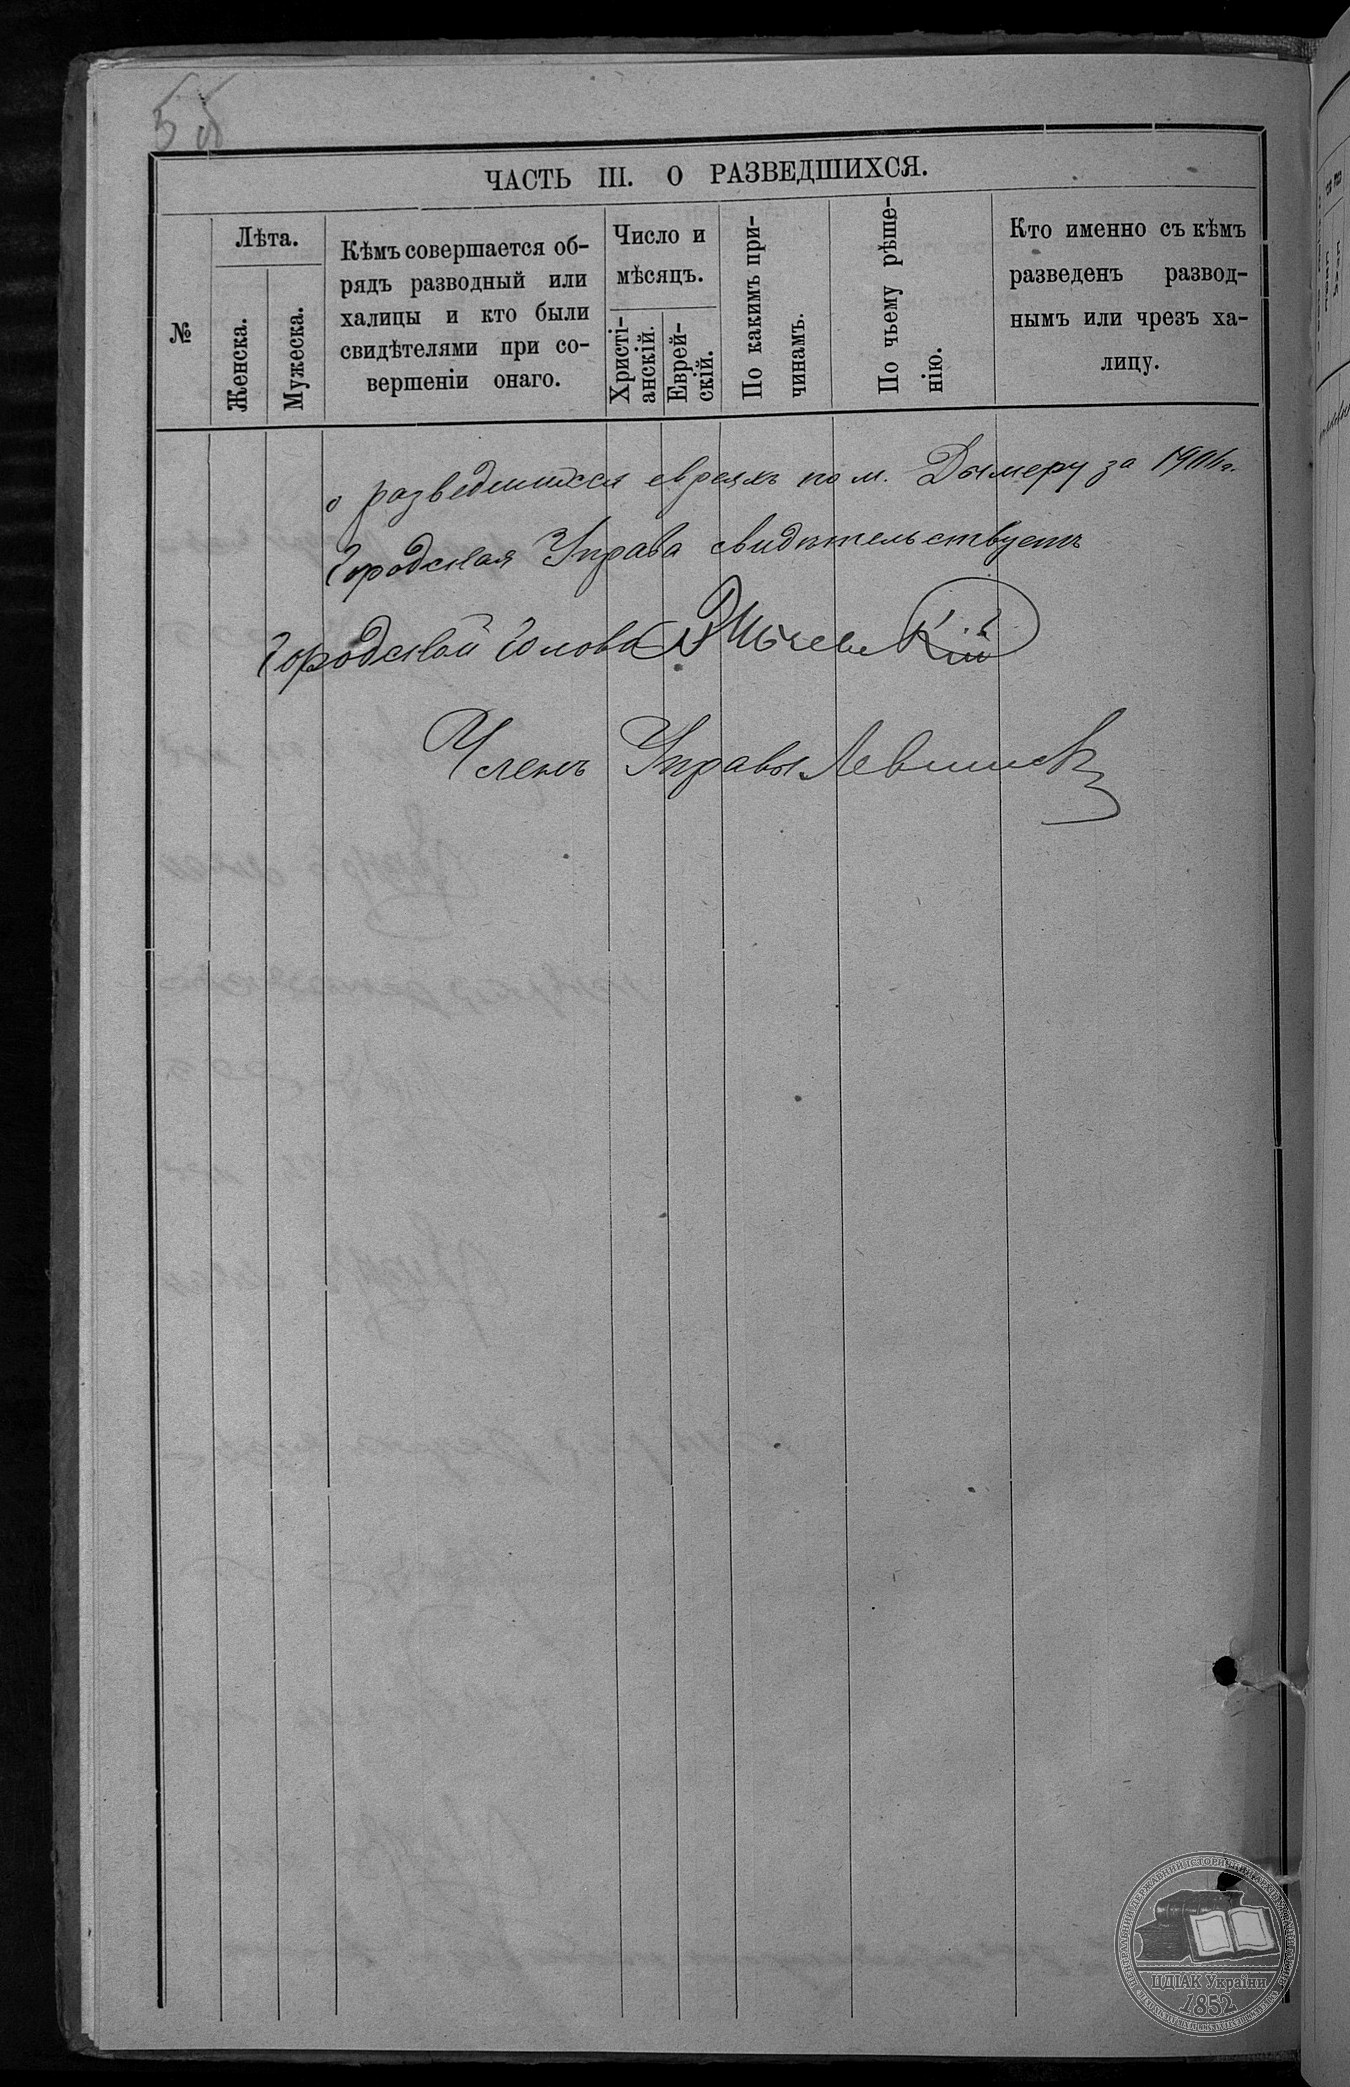 ЧАСТЬ III. О РАЗВЕДШИХСЯ.
№
Лѣта.
Женска.
Мужеска.
Кѣмъ совершается об-
рядъ разводный или
халицы и кто были
свидѣтелями при со-
вершеніи онаго.
Число и
мѣсяцъ.
Христі-
анскій.
Еврей-
скій.
По какимъ при-
чинамъ.
По чьему рѣше-
нію.
Кто именно съ кѣмъ
разведенъ развод-
нымъ или чрезъ ха-
лицу.
о разведшихся евреяхъ по м. Дымеру за
Городская Управа свидѣтельствуетъ
Городской Голова
Членъ Управы
ЦДІАК України
1852